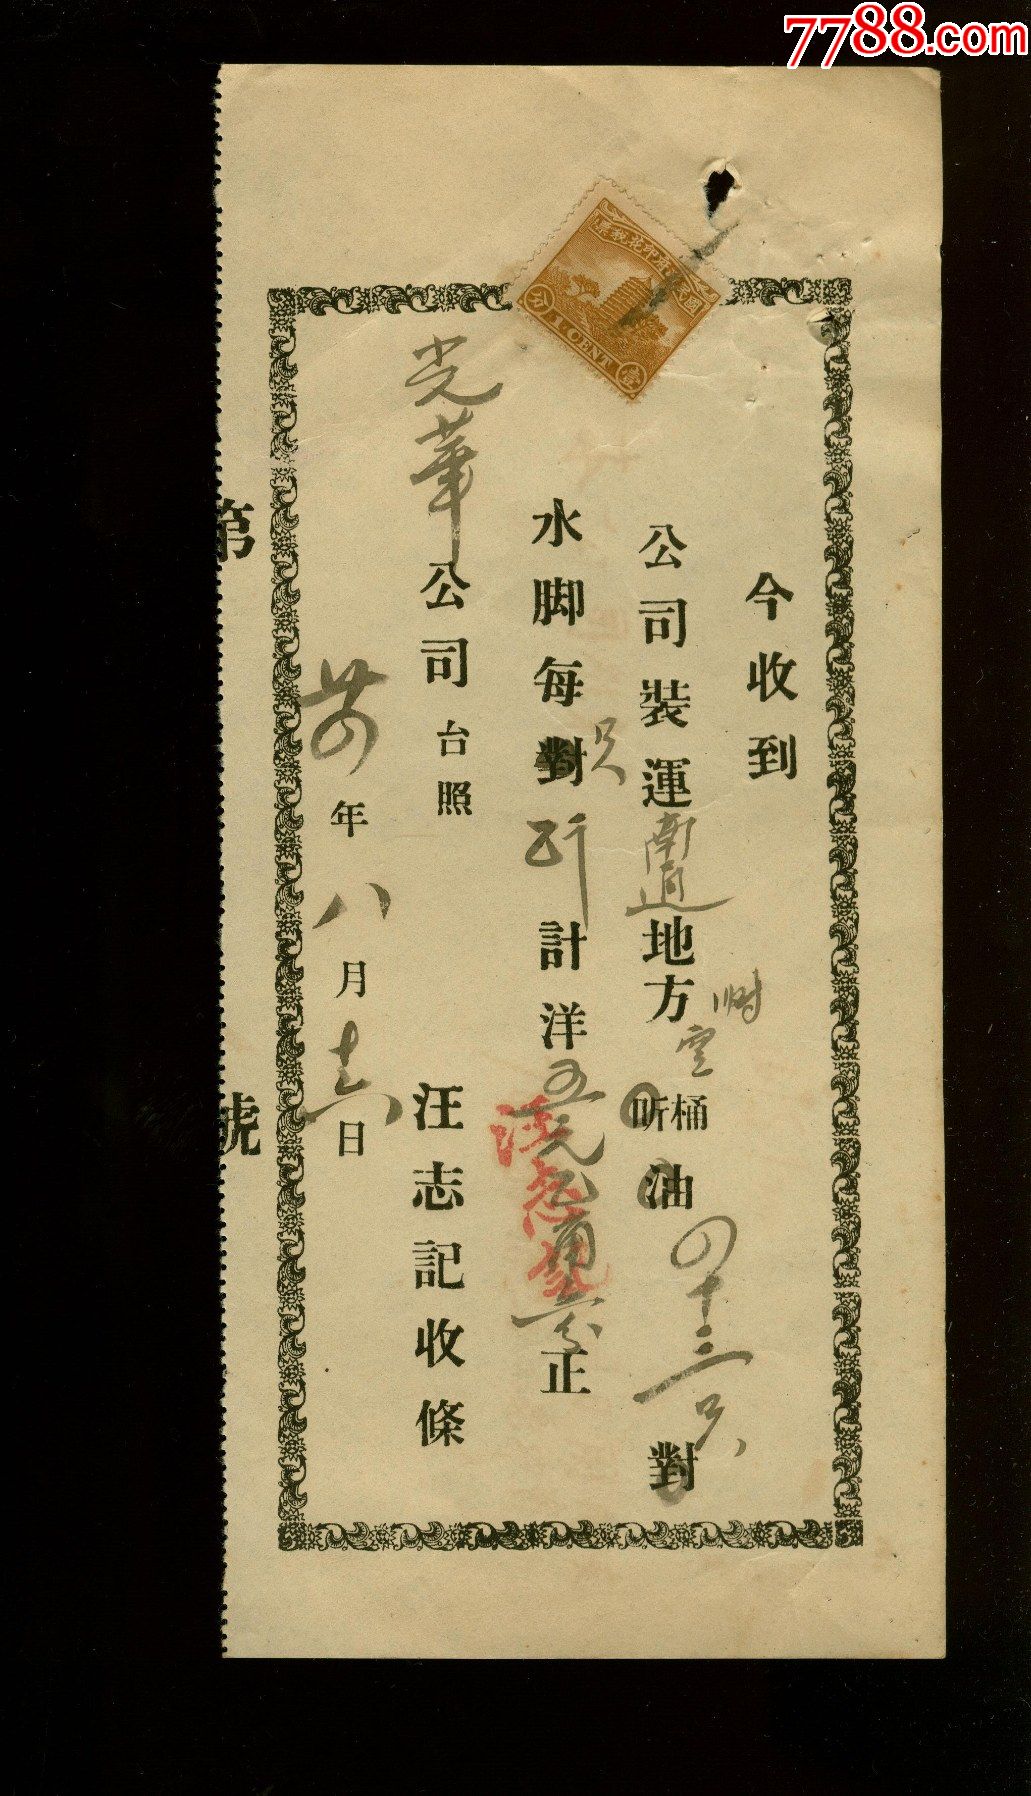 7788.com
國民政府印花稅票
1 CENT
壹
分
今收到
公司裝運南通地方
空
桶
听
油四十三只對
水脚每對只計洋五元
正
光華公司台照
汪志記收條
年八月十六日
第
號